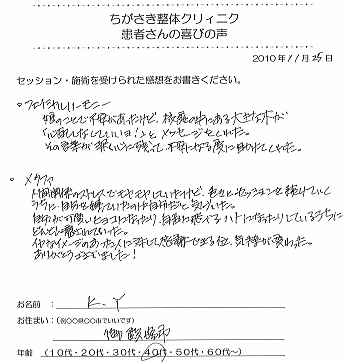 ちがさき整体クリィニク
患者さんの喜びの声
2010年11月25日
セッション・施術を受けられた感想をお書きください。
○フェイシャルハーモニー
娘のことで不安があったけど、校庭の中にある大きな木が
「心配しなくていいヨ!」と メッセージをくれた。
その言葉が 深い に残って、不安になる度に助けてくれた。
○メタファ
人間関係のストレスでモヤモヤしていたけど、色々とセッションを続けていく
うちに、自分を縛っていたのは自分だと気づいた。
自分が可愛いヒヨコになったり、自由に飛べるハトになったりしているうちに
どんどん癒されていった。
イヤなイメージのあった人に対して感謝できる位、気持が変わった。
ありがとうございました!
お名前 : K.Y
お住まい:(例○○県○○市でいいです)
年齢 (10代・20代・30代・40代・50代・60代〜)